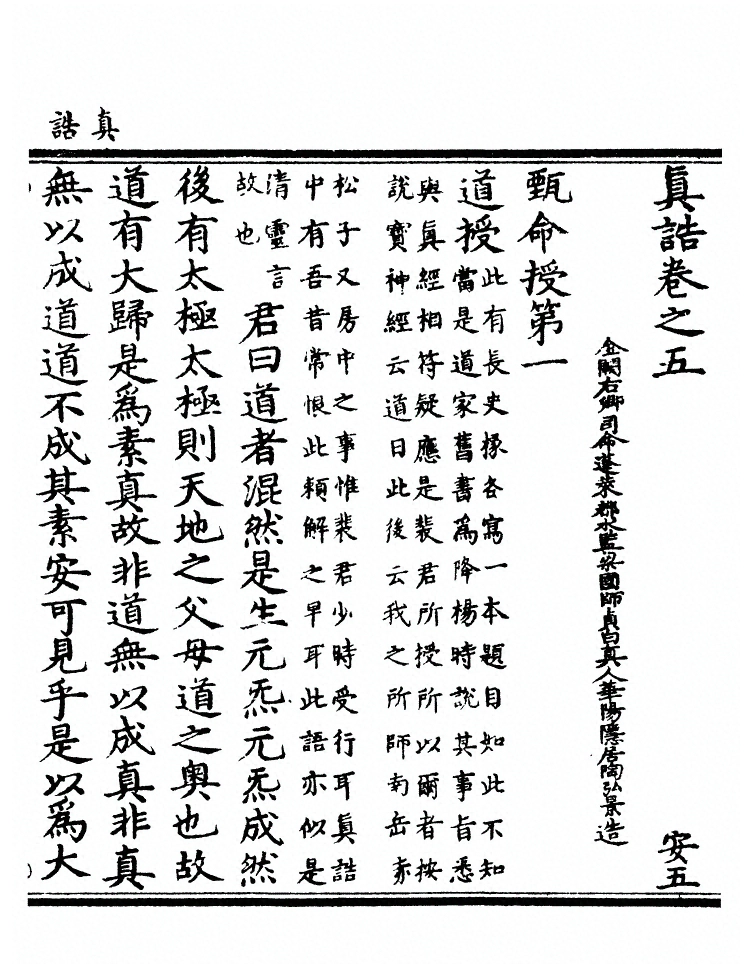 真誥
真誥卷之五
安五
金闕右卿司命蓬萊都水監梁國師貞白真人華陽隱居陶弘景造
甄命授第一
道授此有長史掾各寫一本題目如此不知
當是道家舊書為降楊時說其事旨悉
與真經相符疑應是裴君所授所以爾者按
說寶神經云道曰此後云我之所師南岳赤
松子又房中之事惟裴君少時受行耳真誥
中有吾昔常恨此賴解之早耳此語亦似是
清靈言
故也
君曰道者混然是生元炁元炁成然
後有太極太極則天地之父母道之奧也故
道有大歸是為素真故非道無以成真非真
無以成道道不成其素安可見乎是以為大